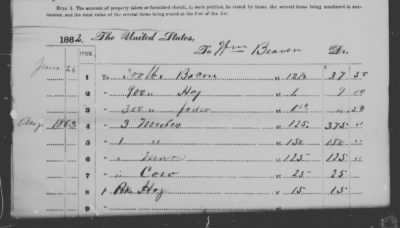 RULE 3. The amount of property taken or furnished should, in each petition, be stated by items, the several items being numbered in succession, and the total value of the several items being stated at the foot of the list.
1862, The United States,
To Wm Beaver Dr.
ITEM.
June 26 1 To 300 lbs Bacon at 12½ 37 50
2 " 900 " Hay at 1 9 00
3 " 300 " fodder at 50
Aug 1863 4 " 3 Mules at 125 375 00
5 " 1 " at 150 150
6 " " Mare at 125 125
7 " " Cow at 25 25
8 " Hog at 15 15
9